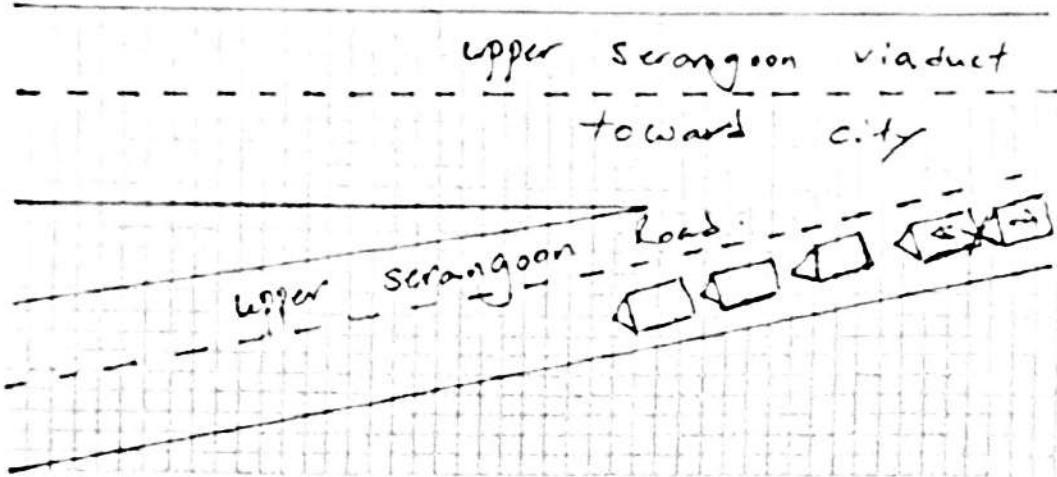 upper serangoon viaduct
toward city
upper serangoon Road